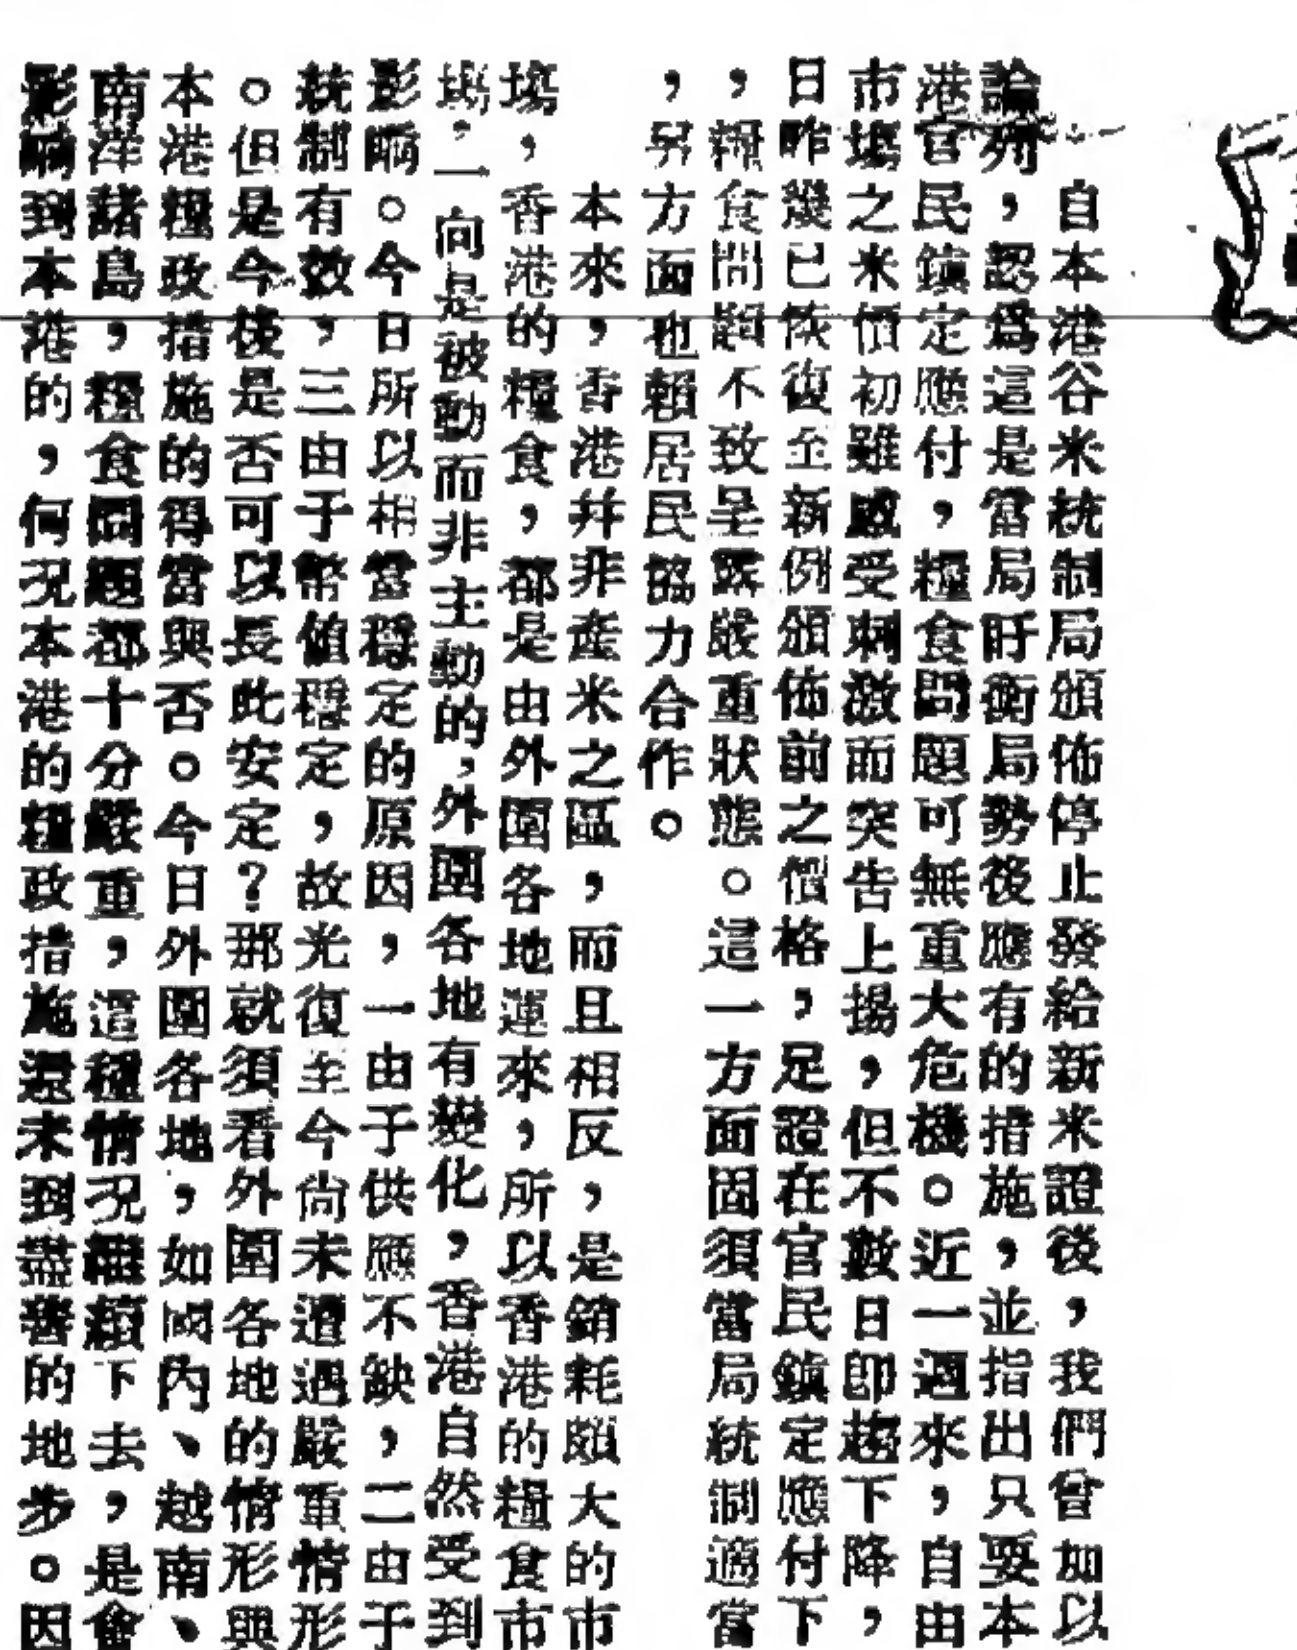 自本港谷米統制局頒佈停止發給新米證後，我們曾加以
論列，認爲這是當局盱衡局勢後應有的措施，並指出只要本
港官民鎮定應付，糧食問題可無重大危機。近一週來，自由
市塲之米價初雖感受刺激而突告上揚，但不數日即趨下降，
日昨幾已恢復至新例頒佈前之價格，足證在官民鎮定應付下
，糧食問題不致呈露嚴重狀態。這一方面固須當局統制適當
，另方面也賴居民協力合作。
本來，香港幷非產米之區，而且相反，是銷耗頗大的市
塲，香港的糧食，都是由外圍各地運來，所以香港的糧食市
塲，一向是被動而非主動的，外圍各地有變化，香港自然受到
影响。今日所以相當穩定的原因，一由于供應不缺，二由于
統制有效，三由于幣值穩定，故光復至今尙未遭遇嚴重情形
。但是今後是否可以長此安定？那就須看外圍各地的情形與
本港糧政措施的得當與否。今日外圍各地，如國內、越南、
南洋諸島，糧食問題都十分嚴重，這種情况繼續下去，是會
影响到本港的，何况本港的糧政措施還未到盡善的地步。因